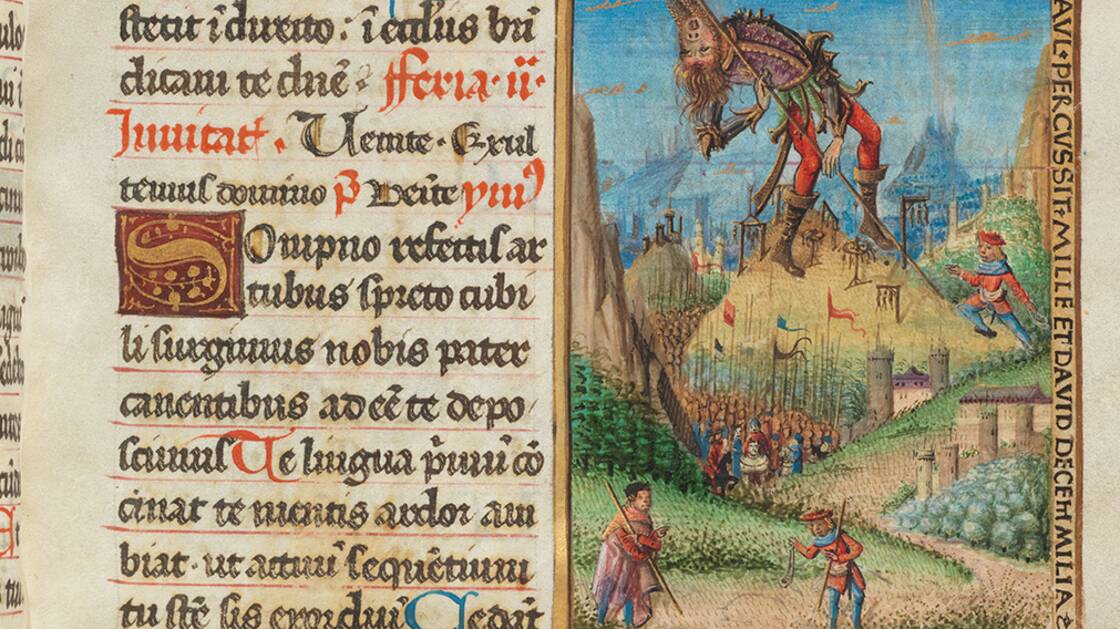 stetit i͂ directo : i͂ ecclͥis bn̄
dicam te dn̄ē · fferia · ii ·
Inuitat̃ · Uenite · Exul
temus domino p̃ Venite ymꝰ
Sompno refectis ar
tubus spreto cubi
li surgimus nobis pater
canentibus adeē te depo
scimus Te lingua p̄mū cō
cinat te mentis ardor am
biat · ut actuū sequētium
tu sc̄e sis exordiū Cedāt
AVL · PERCVSSIT · MILLE ET DAVID DECEM MILIA